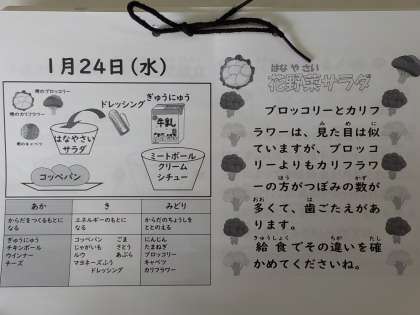 1月24日(水)
緑のブロッコリー
緑のカリフラワー
緑のキャベツ
ドレッシング
ぎゅうにゅう
牛乳
はなやさい
サラダ
コッペパン
ミートボール
クリーム
シチュー
あか
き
みどり
からだをつくるもとに
なる
エネルギーのもとに
なる
からだのちょうしを
ととのえる
ぎゅうにゅう
チキンボール
ウインナー
チーズ
コッペパン ごま
じゃがいも さとう
ルウ あぶら
マヨネーズふう
ドレッシング
にんじん
たまねぎ
ブロッコリー
キャベツ
カリフラワー
はなやさい
花野菜サラダ
ブロッコリーとカリフ
ラワーは、見た目は似
ていますが、ブロッコ
リーよりもカリフラワ
ーの方がつぼみの数が
多くて、歯ごたえがあ
ります。
給食でその違いを確
かめてくださいね。